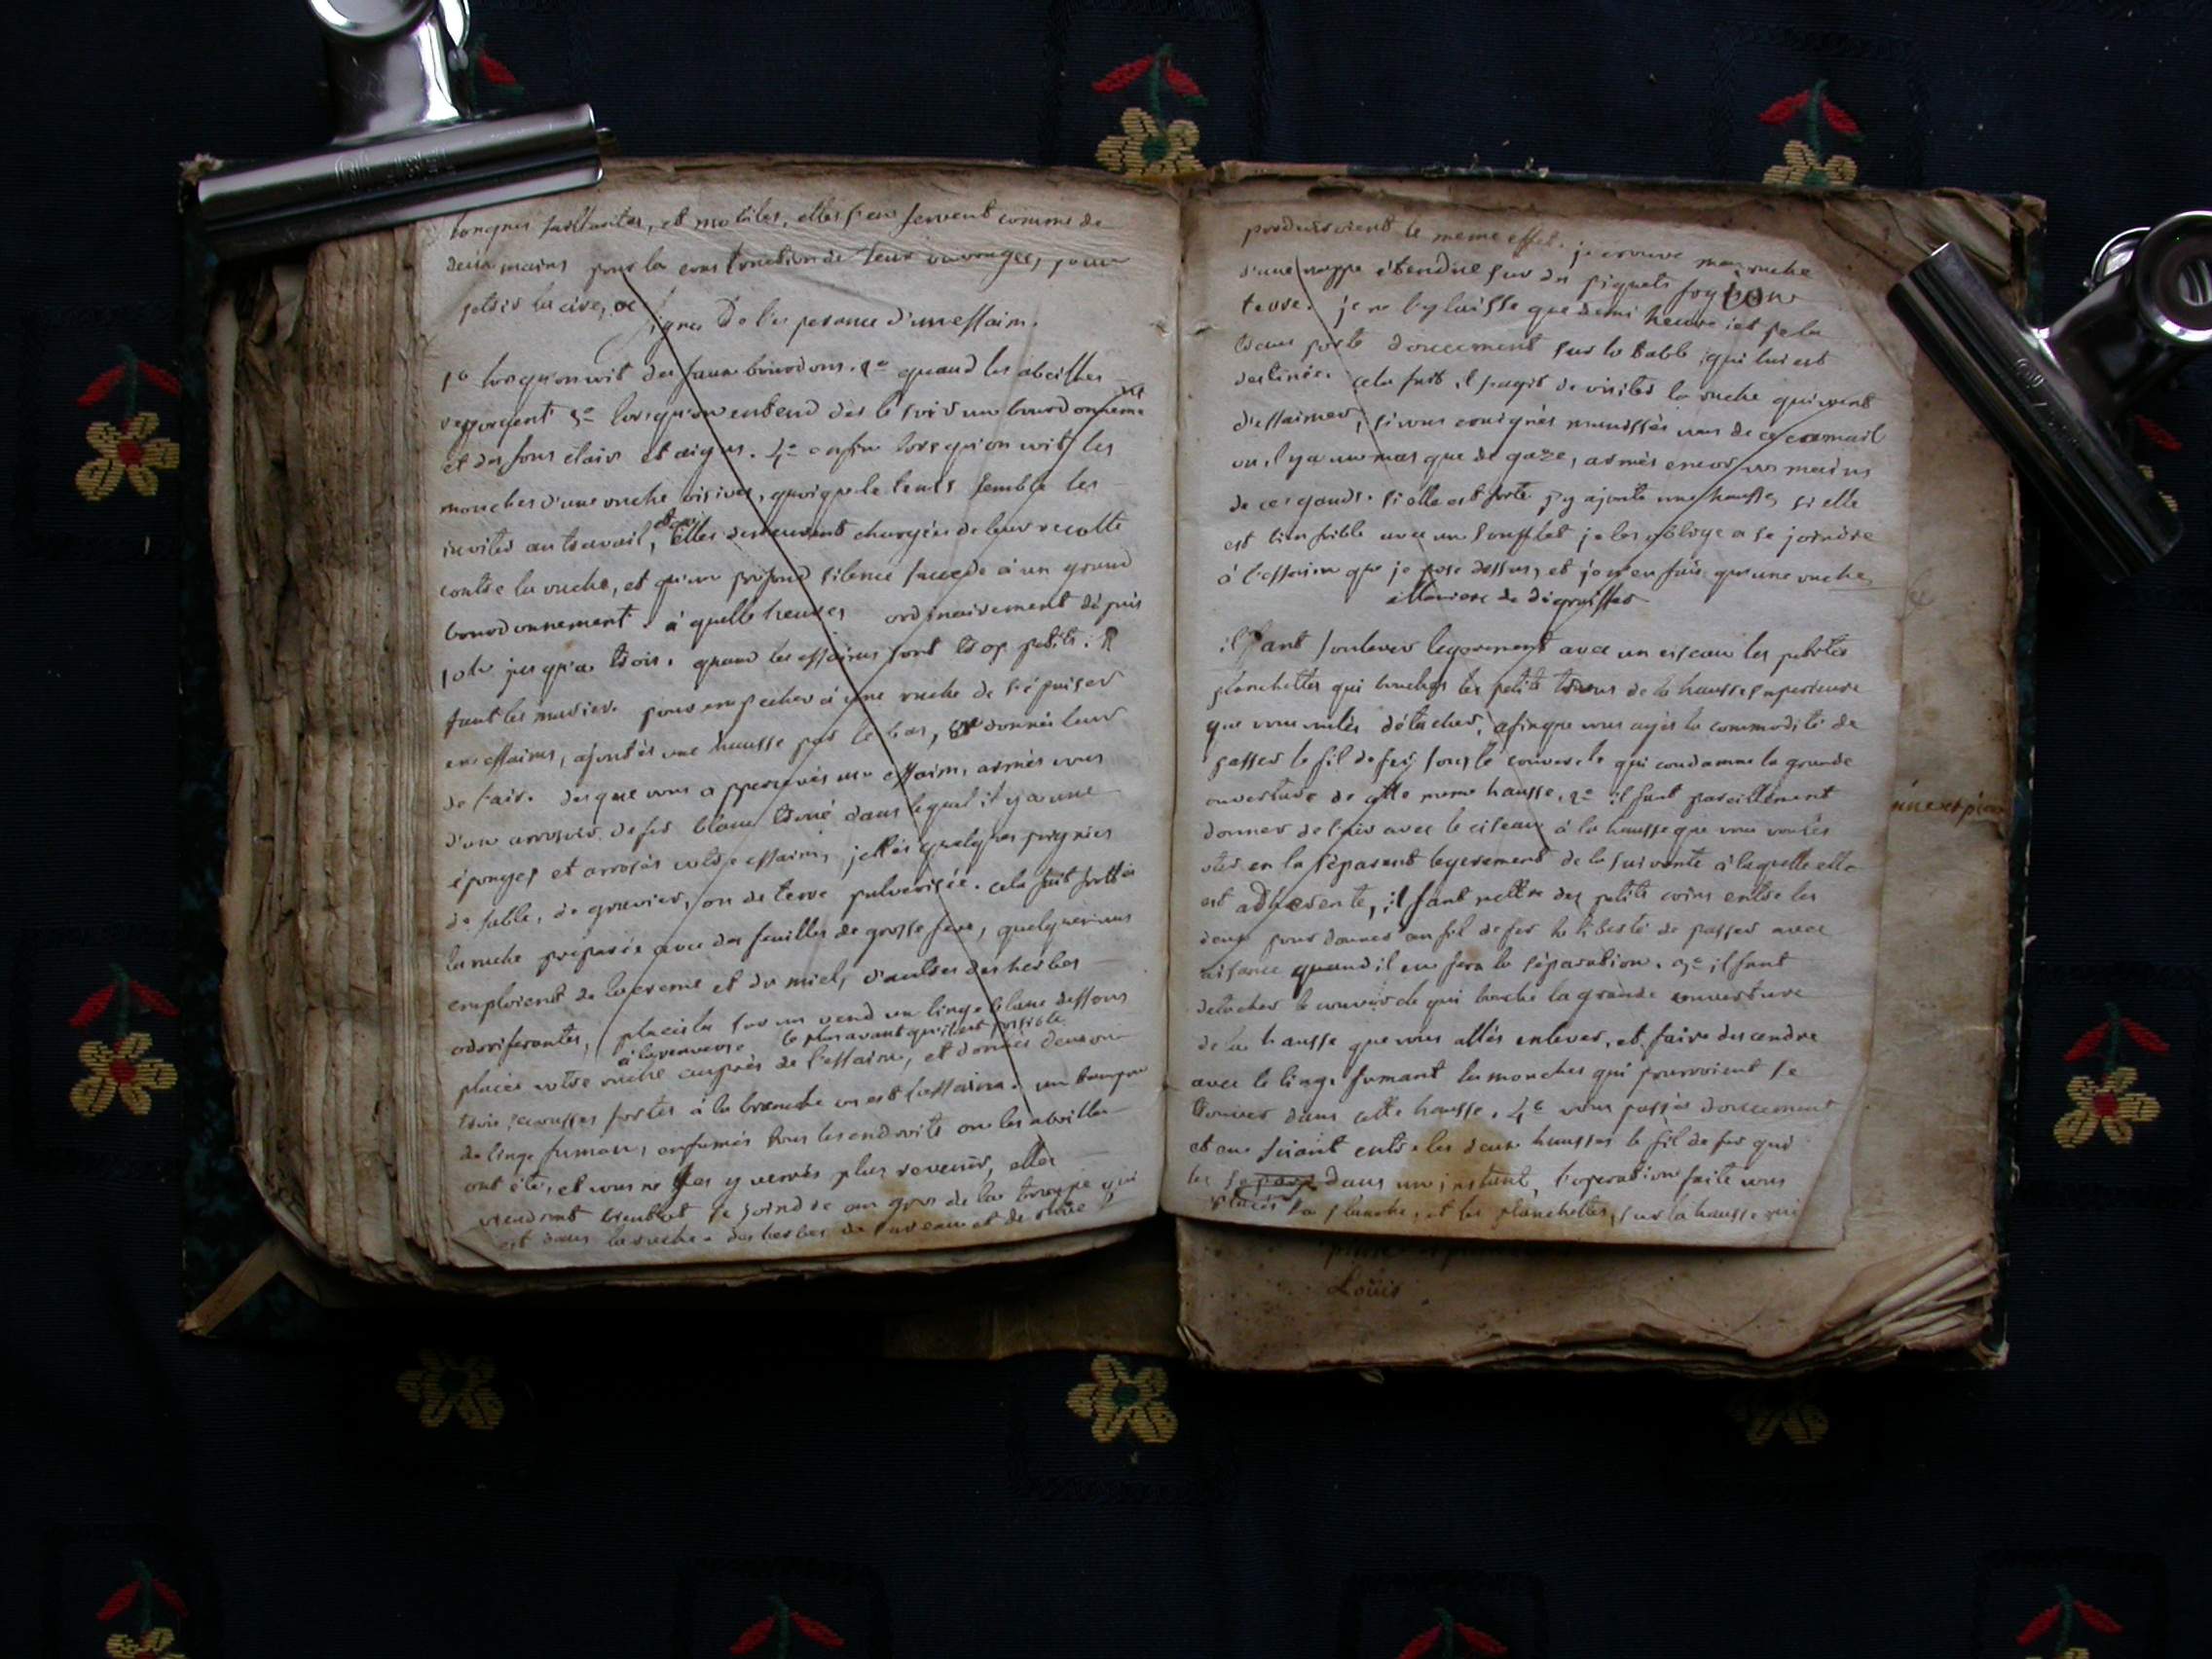 longues saillantes, et mobiles, elles s'en servent comme de
deux mains pour la construction de leur ouvrages, pour
petrir la cire,
signes De l'es perance d'un essaim.
1º lorsqu'on voit des faux bourdons. 2º quand les abeilles
regorgent 3º lorsqu'on entend des le soir un bourdonnement
et des sons clairs et aigus. 4º enfin lorsqu'on voit les
mouches d'une ruche oisives, quoique le tems semble les
inviter au travail, et qu'elles demeurent chargées de leur recolte
contre la ruche, et qu'un profond silence succede à un grand
bourdonnement. à quelle heures ordinairement dépuis
10h jusqu'a trois. quand les essaims sont trop petits. Il
faut les marier. pour empecher à une ruche de s'épuiser
en essaims, ajoutés une hausse par le bas, donnés leur
de l'air. des que vous appercevés un essaim, armés vous
d'un arrosoir de fer blanc troué dans lequel il y a une
éponge, et arrosés votre essaim, jettés quelques poignées
de sable, de gravier, ou de terre pulverisée. cela fait frottés
la ruche préparée avec des feuilles de grosse feve, quelques uns
emploient de la creme et du miel, d'autres des herbes
odoriferantes, placés la sur un linge blanc dessous
à la renverse le plus avant qu'il est possible
placés votre ruche auprès de l'essaim, et donnés deux ou
trois secousses fortes à la branche ou est l'essaim. un tampon
de linge fumant, enfumés tous les endroits ou les abeilles
ont été, et vous ne les y verrés plus revenir, elles
viendront bientot se joindre au gros de la troupe qui
est dans la ruche. des herbes de sureau et de rhue
produisoient le meme effet. je couvre ma ruche
d'une nappe étendue sur des piquets
terre. je ne l'y laisse que demi heure et je la
transporte doucement sur la table qui lui est
destinée. cela fait, il s'agit de visiter la ruche qui vient
d'essaimer, si vous craignés munissés vous de ce camail
ou il y a un masque de gaze, armés encor vos mains
de ces gands. si elle est forte j'y ajoute une hausse, si elle
est bien foible avec un soufflet je les oblige a se joindre
à l'essaim que je pose dessus, et je n'en fais qu'une ruche,
Maniere de dégraisser
il faut soulever legerement avec un ciseau les petites
planchettes qui bouchent les petits trous de la hausse superieure
que vous voulés détacher, afin que vous ayés la commodité de
passer le fil de fer sous le couvercle qui condamne la grande
ouverture de cette meme hausse. 2º il faut pareillement
donner de l'air avec le ciseau à la hausse que vous voulés
oter en la séparant legerement de la suivante à laquelle elle
est adherente, il faut mettre des petits coins entre les
deux pour donner au fil de fer la liberté de passer avec
aisance quand il en fera la séparation. 3º il faut
detacher le couvercle qui bouche la grande ouverture
de la hausse que vous allés enlever, et faire descendre
avec le linge fumant les mouches qui pourroient se
trouver dans cette hausse. 4º vous passés doucement
et en sciant entre les deux hausses le fil de fer qui
les separe dans un instant, l'operation faite vous
placés la planche, et les planchettes, sur la hausse qui
Louis